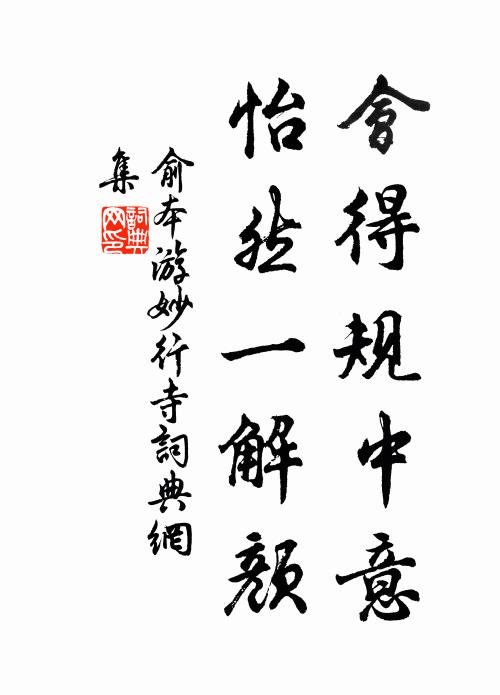 會得規中意
怡然一解顏
俞本游妙行寺詞典網
集
詞典
网印